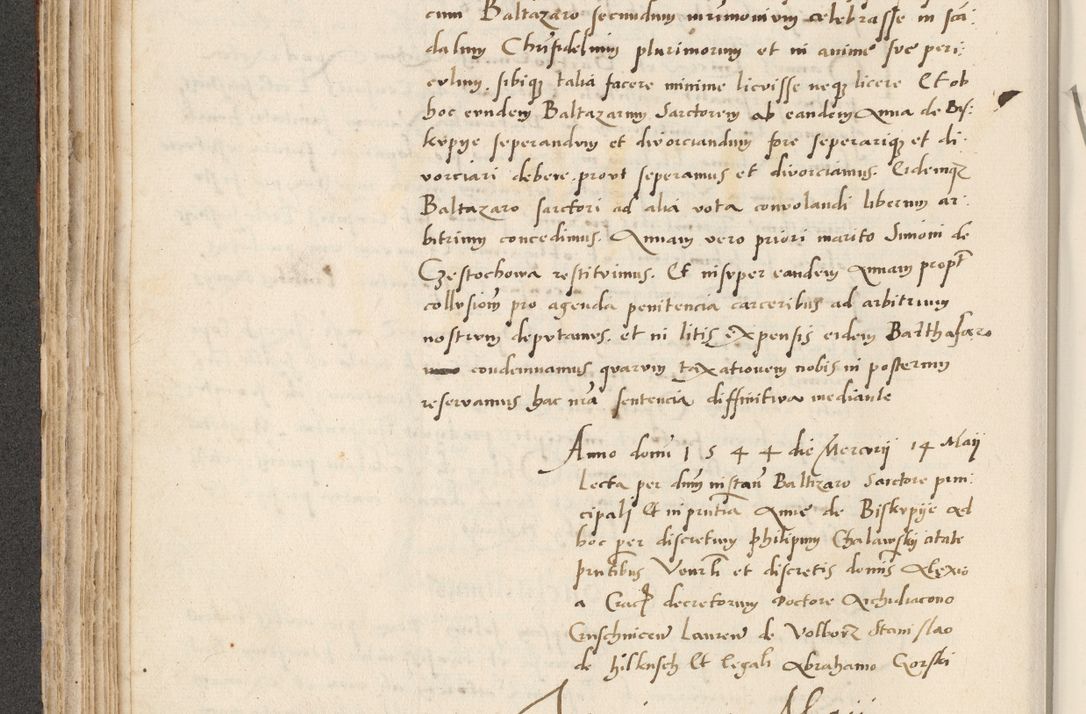 cum Baltazaro secundum mrimonium celebrasse in scā
dalum Chrifidelium plurimorum et in anime sue peri
culum, sibiq; talia facere minime licuisse neq; licere Et ob
hoc eundem Baltazarum Sarctorem ab eandem Anna de Bis:
kupye seperandum et divorciandum fore seperariq; et di
vorciari debere, prout seperamus et divorciamus. Eidemq;
Baltazaro sarctori ad alia vota convolandi liberum ar
bitrium concedimus. Annam vero priori marito Simoni de
Częstochowa restituimus. Et insuper eandem Annam propt
collusionem pro agenda penitencia carceribus ad arbitrium
nostrum deputamus. et in litis expensis eidem Balthasaro
condemnamus quarum taxationem nobis in posterum
reservamus hac nrā sentencia diffinitiva mediante
Anno domi 1544 die Mercurij 14 Maij
Lecta per dnm in stan Baltizaro Sarctore prin
cipali Et in prntia Anne de Biskupije ad
hoc per discretum philipum Chalawskij citate
prntibus Venrli et discretis domis Alexio
a Crac decretorum Doctore Archidiacono
Laurēn de Volborz Stanislao
de hilknsch Et legali Abrahamo Gorski